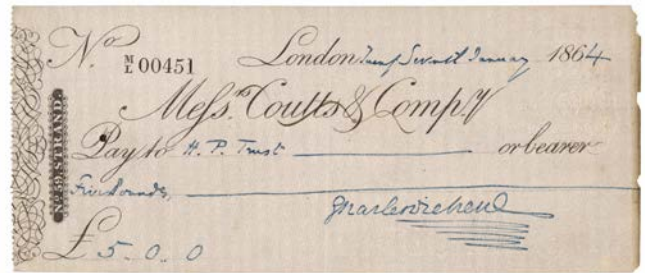 No. M/L 00451 London Twenty Seventh January 1864
Messrs. Coutts & Compy
Pay to H. P. Trust or bearer
Five Pounds
Charles Dickens
£ 5. 0. 0
STRAND